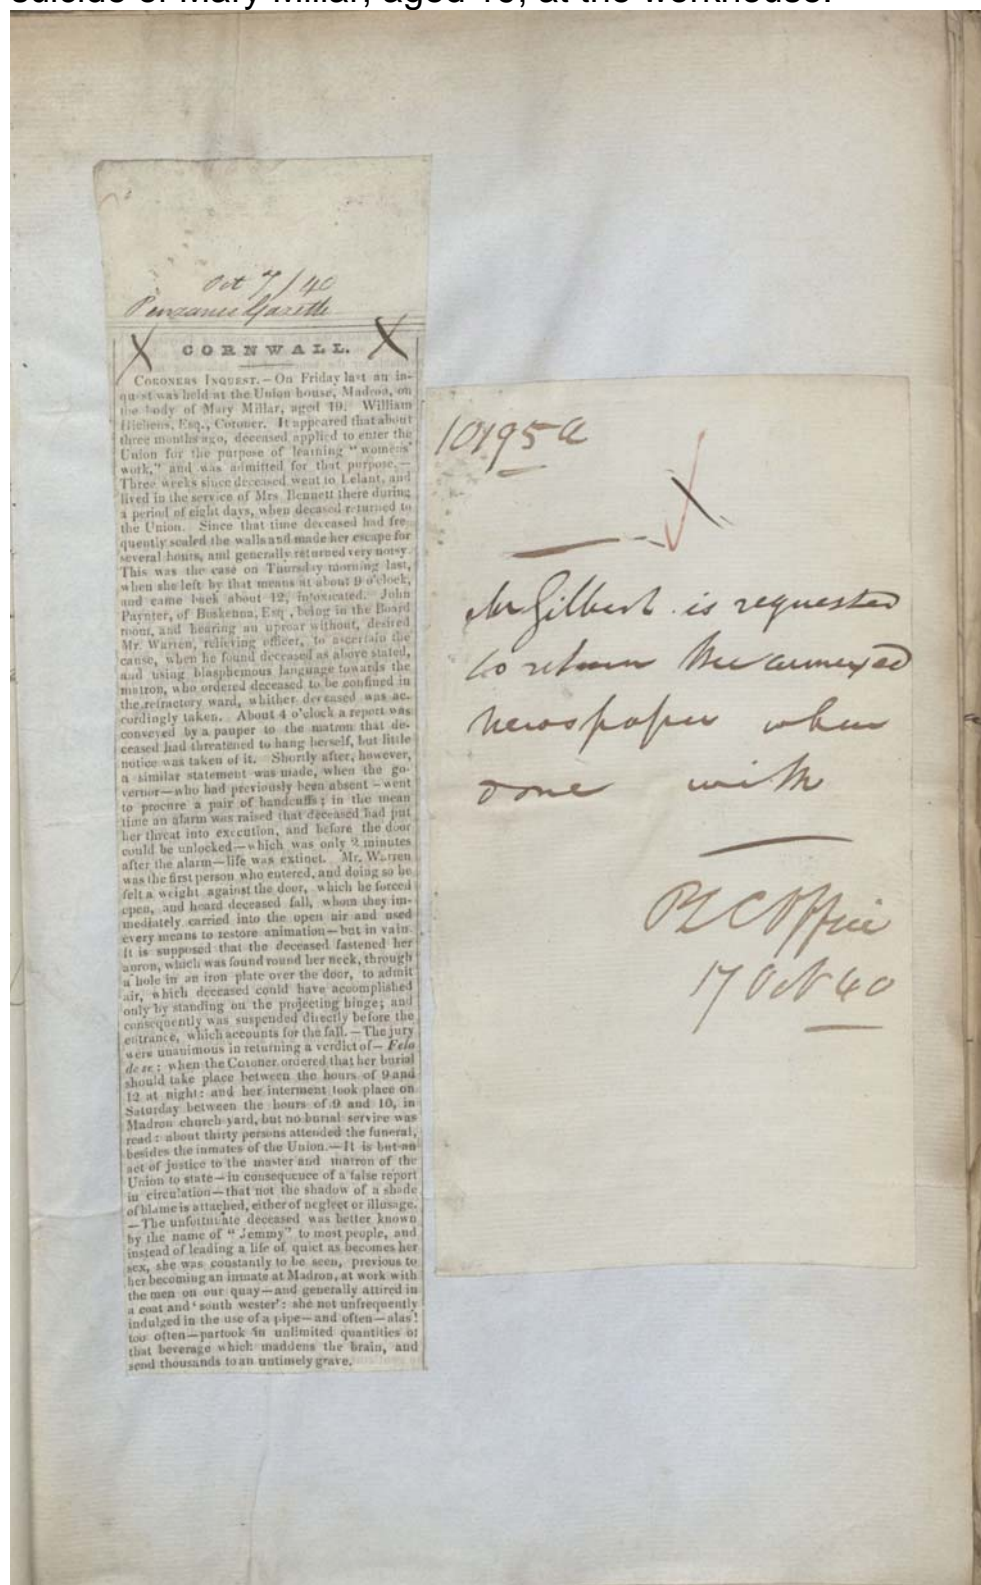 suicide of Mary Millar, aged 19, at the workhouse.
Oct 7/40
Penzance Gazette
CORNWALL.
CORONERS INQUEST.—On Friday last an in-
quest was held at the Union house, Madron, on
the body of Mary Millar, aged 19. William
Hichens, Esq., Coroner. It appeared that about
three months ago, deceased applied to enter the
Union for the purpose of learning "womens'
work," and was admitted for that purpose.—
Three weeks since deceased went to Lelant, and
lived in the service of Mrs Bennett there during
a period of eight days, when decased returned to
the Union. Since that time deceased had fre-
quently scaled the walls and made her escape for
several hours, and generally returned very noisy.
This was the case on Thursday morning last,
when she left by that means at about 9 o'clock,
and came back about 12, intoxicated. John
Paynter, of Boskenna, Esq., being in the Board
room, and hearing an uproar without, desired
Mr. Warren, relieving officer, to ascertain the
cause, when he found deceased as above stated,
and using blasphemous language towards the
matron, who ordered deceased to be confined in
the refractory ward, whither deceased was ac-
cordingly taken. About 4 o'clock a report was
conveyed by a pauper to the matron that de-
ceased had threatened to hang herself, but little
notice was taken of it. Shortly after, however,
a similar statement was made, when the go-
vernor—who had previously been absent—went
to procure a pair of handcuffs; in the mean
time an alarm was raised that deceased had put
her threat into execution, and before the door
could be unlocked—which was only 2 minutes
after the alarm—life was extinct. Mr. Warren
was the first person who entered, and doing so he
felt a weight against the door, which he forced
open, and heard deceased fall, whom they im-
mediately carried into the open air and used
every means to restore animation—but in vain.
It is supposed that the deceased fastened her
apron, which was found round her neck, through
a hole in an iron plate over the door, to admit
air, which deceased could have accomplished
only by standing on the projecting hinge; and
consequently was suspended directly before the
entrance, which accounts for the fall.—The jury
were unanimous in returning a verdict of—Felo
de se; when the Coroner ordered that her burial
should take place between the hours of 9 and
12 at night: and her interment took place on
Saturday between the hours of 9 and 10, in
Madron church yard, but no burial service was
read: about thirty persons attended the funeral,
besides the inmates of the Union.—It is but an
act of justice to the master and matron of the
Union to state—in consequence of a false report
in circulation—that not the shadow of a shade
of blame is attached, either of neglect or illusage.
—The unfortunate deceased was better known
by the name of "Jemmy" to most people, and
instead of leading a life of quiet as becomes her
sex, she was constantly to be seen, previous to
her becoming an inmate at Madron, at work with
the men on our quay—and generally attired in
a coat and 'south wester': she not unfrequently
indulged in the use of a pipe—and often—alas!
too often—partook in unlimited quantities of
that beverage which maddens the brain, and
send thousands to an untimely grave.
10195a
Mr Gilbert is requested
to return the annexed
newspaper when
done with
PLC Office
17 Oct 40